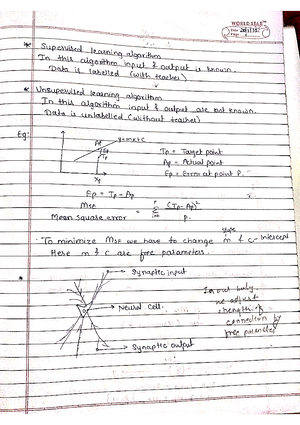 WORLD STAR
Date
Page
* Supervised learning algorithm
In this algorithm input & output is known.
Data is labelled (with teacher)
* Unsupervised learning algorithm
In this algorithm input & output are not known.
Data is unlabelled (without teacher)
Eg:
y=mx+c
Ap
Ep
Tp
Xp
Tp = Target point
Ap = Actual point
Ep = Error at point P.
Ep = Tp - Ap
MSE
Mean square error = Σ (Tp - Ap)²
P.
slope
To minimize MSE we have to change m & c - Intercept
Here m & c are free parameters.
*
Synaptic input
Neural Cell.
Synaptic output
we adjust
strength of
connection by
free parameter